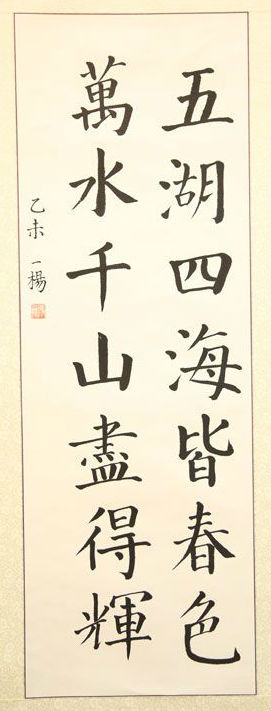 五湖四海皆春色
萬水千山盡得輝
乙未 一楊